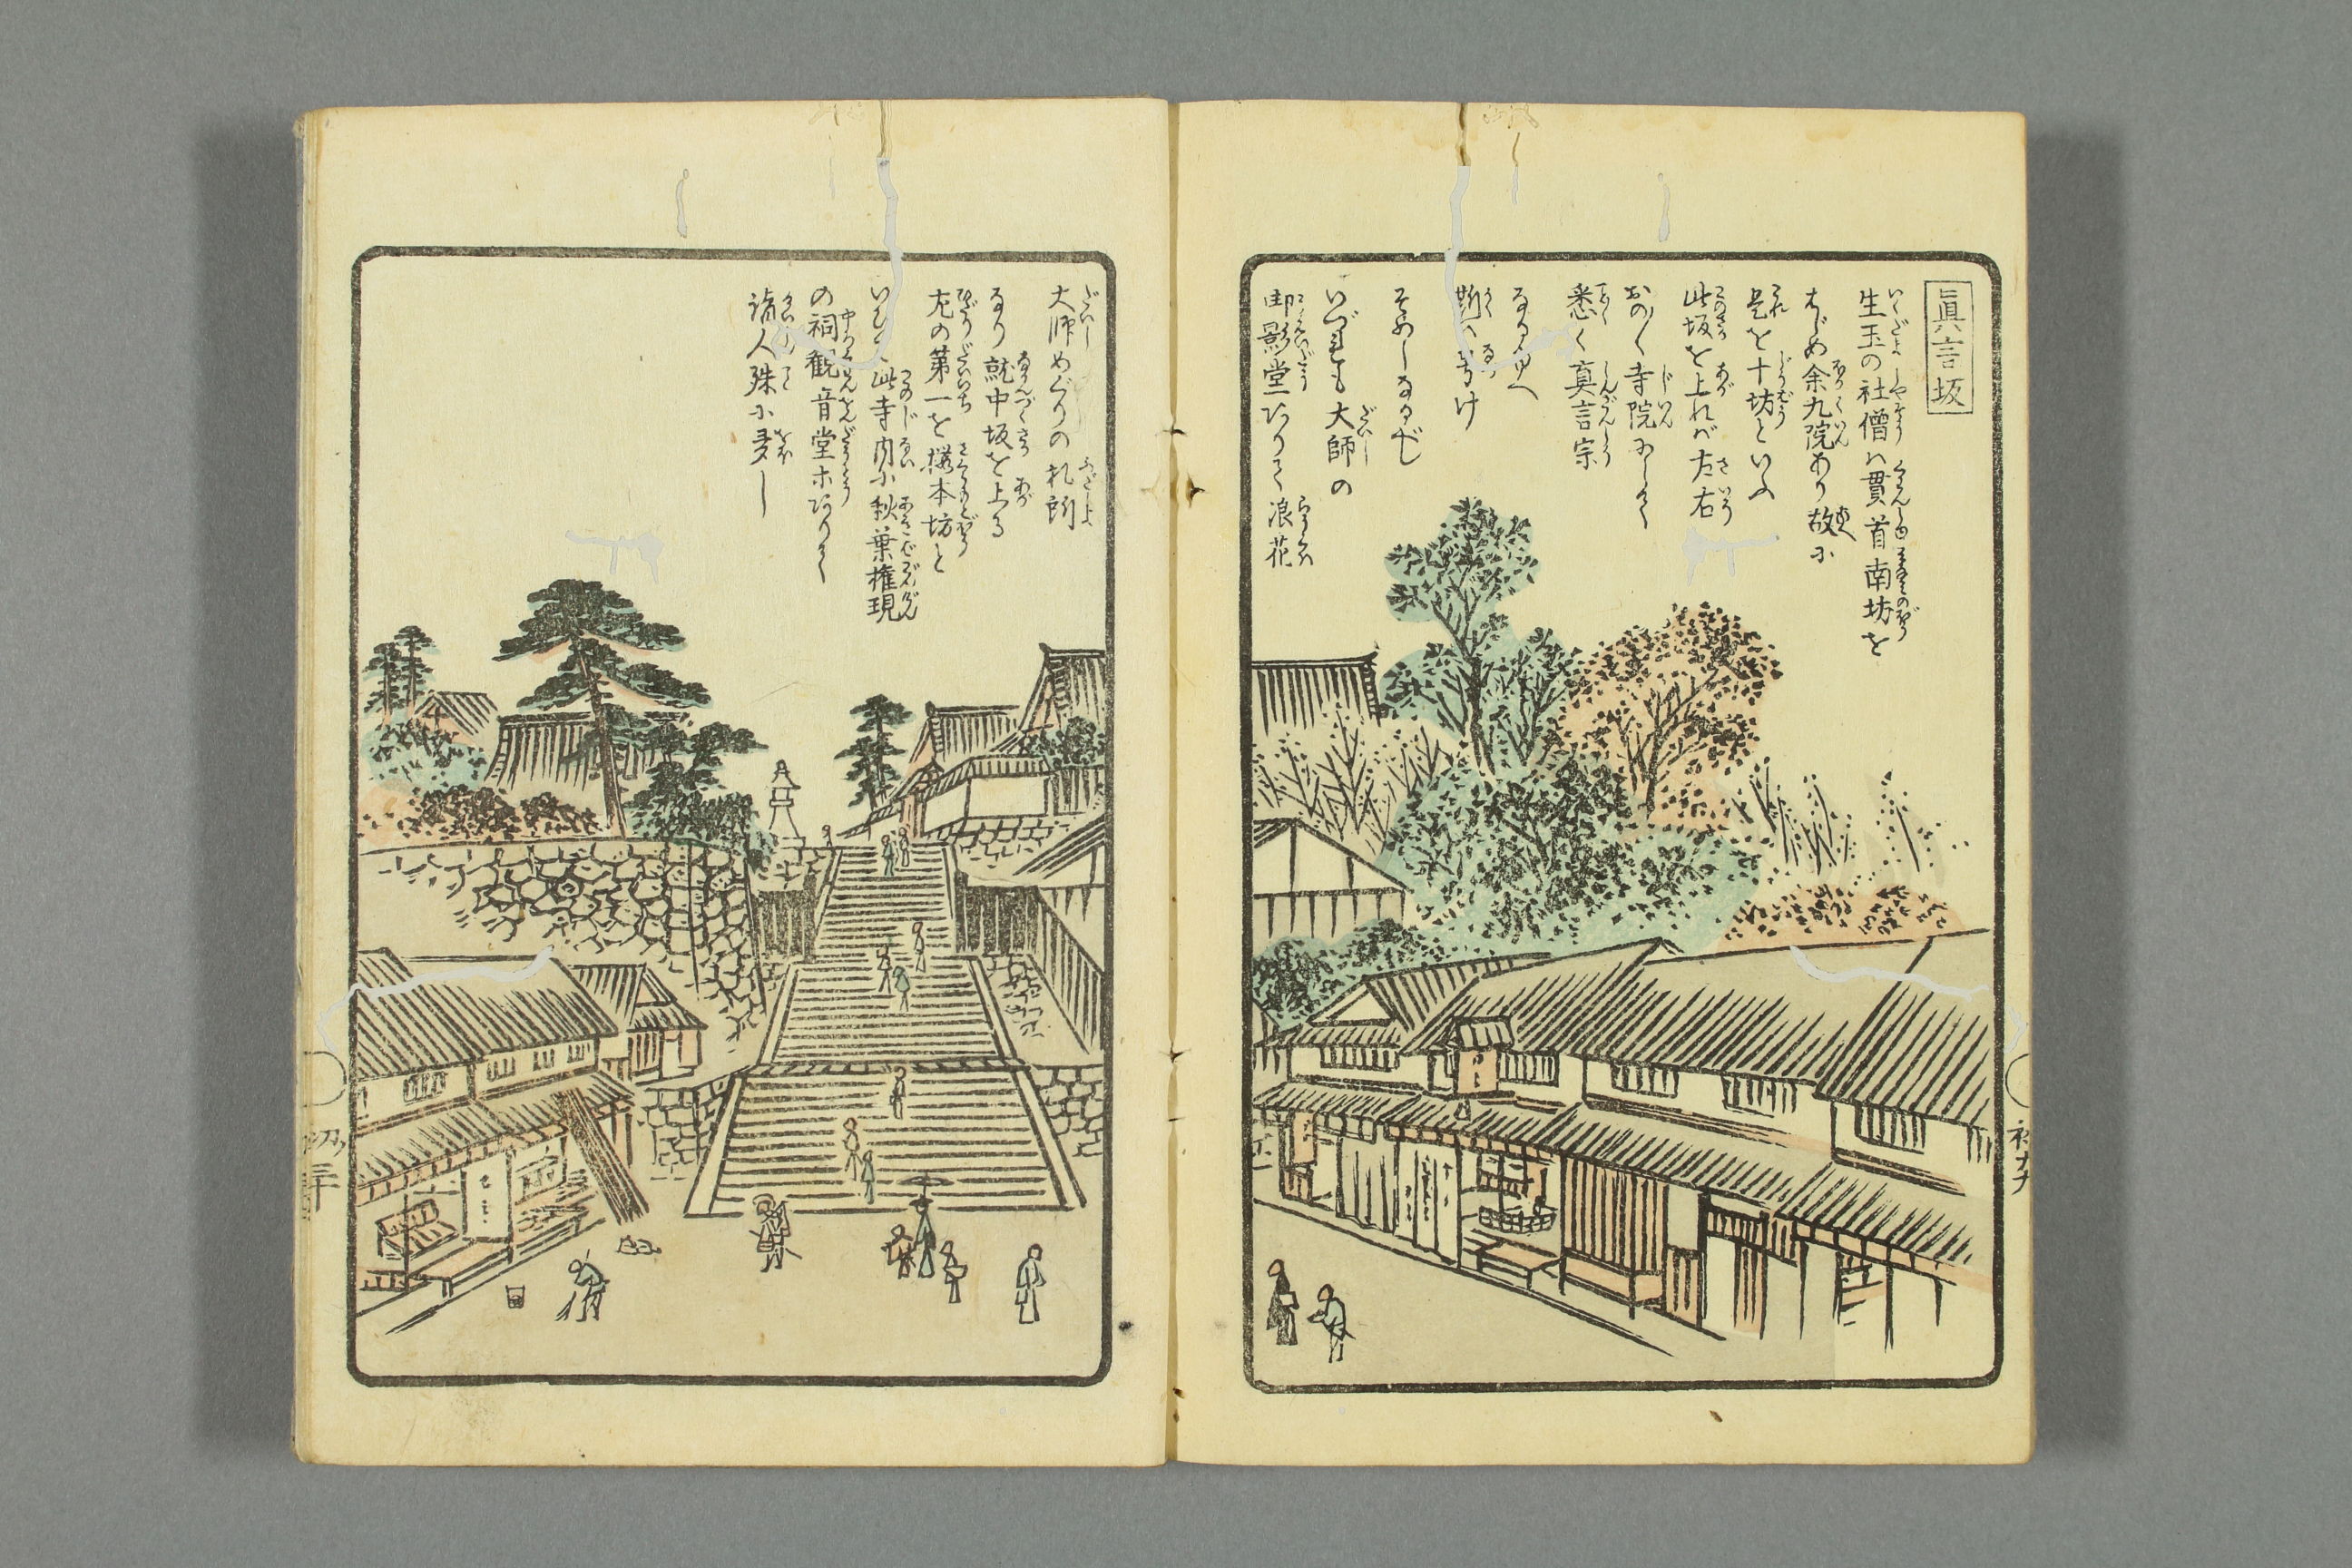 眞言坂
生玉の社僧ハ貫首南坊を
はじめ余九院あり故に
是を十坊といふ
此坂を上れバ左右
おの〳〵寺院にして
悉く真言宗
なるゆへ
斯ハ号け
そめしなるべし
いづれも大師の
御影堂ありて浪花
大師めぐりの札所
なり就中坂を上る
左の第一を桜本坊と
いひて此寺内に秋葉権現
の祠観音堂ホありて
諸人殊に多し